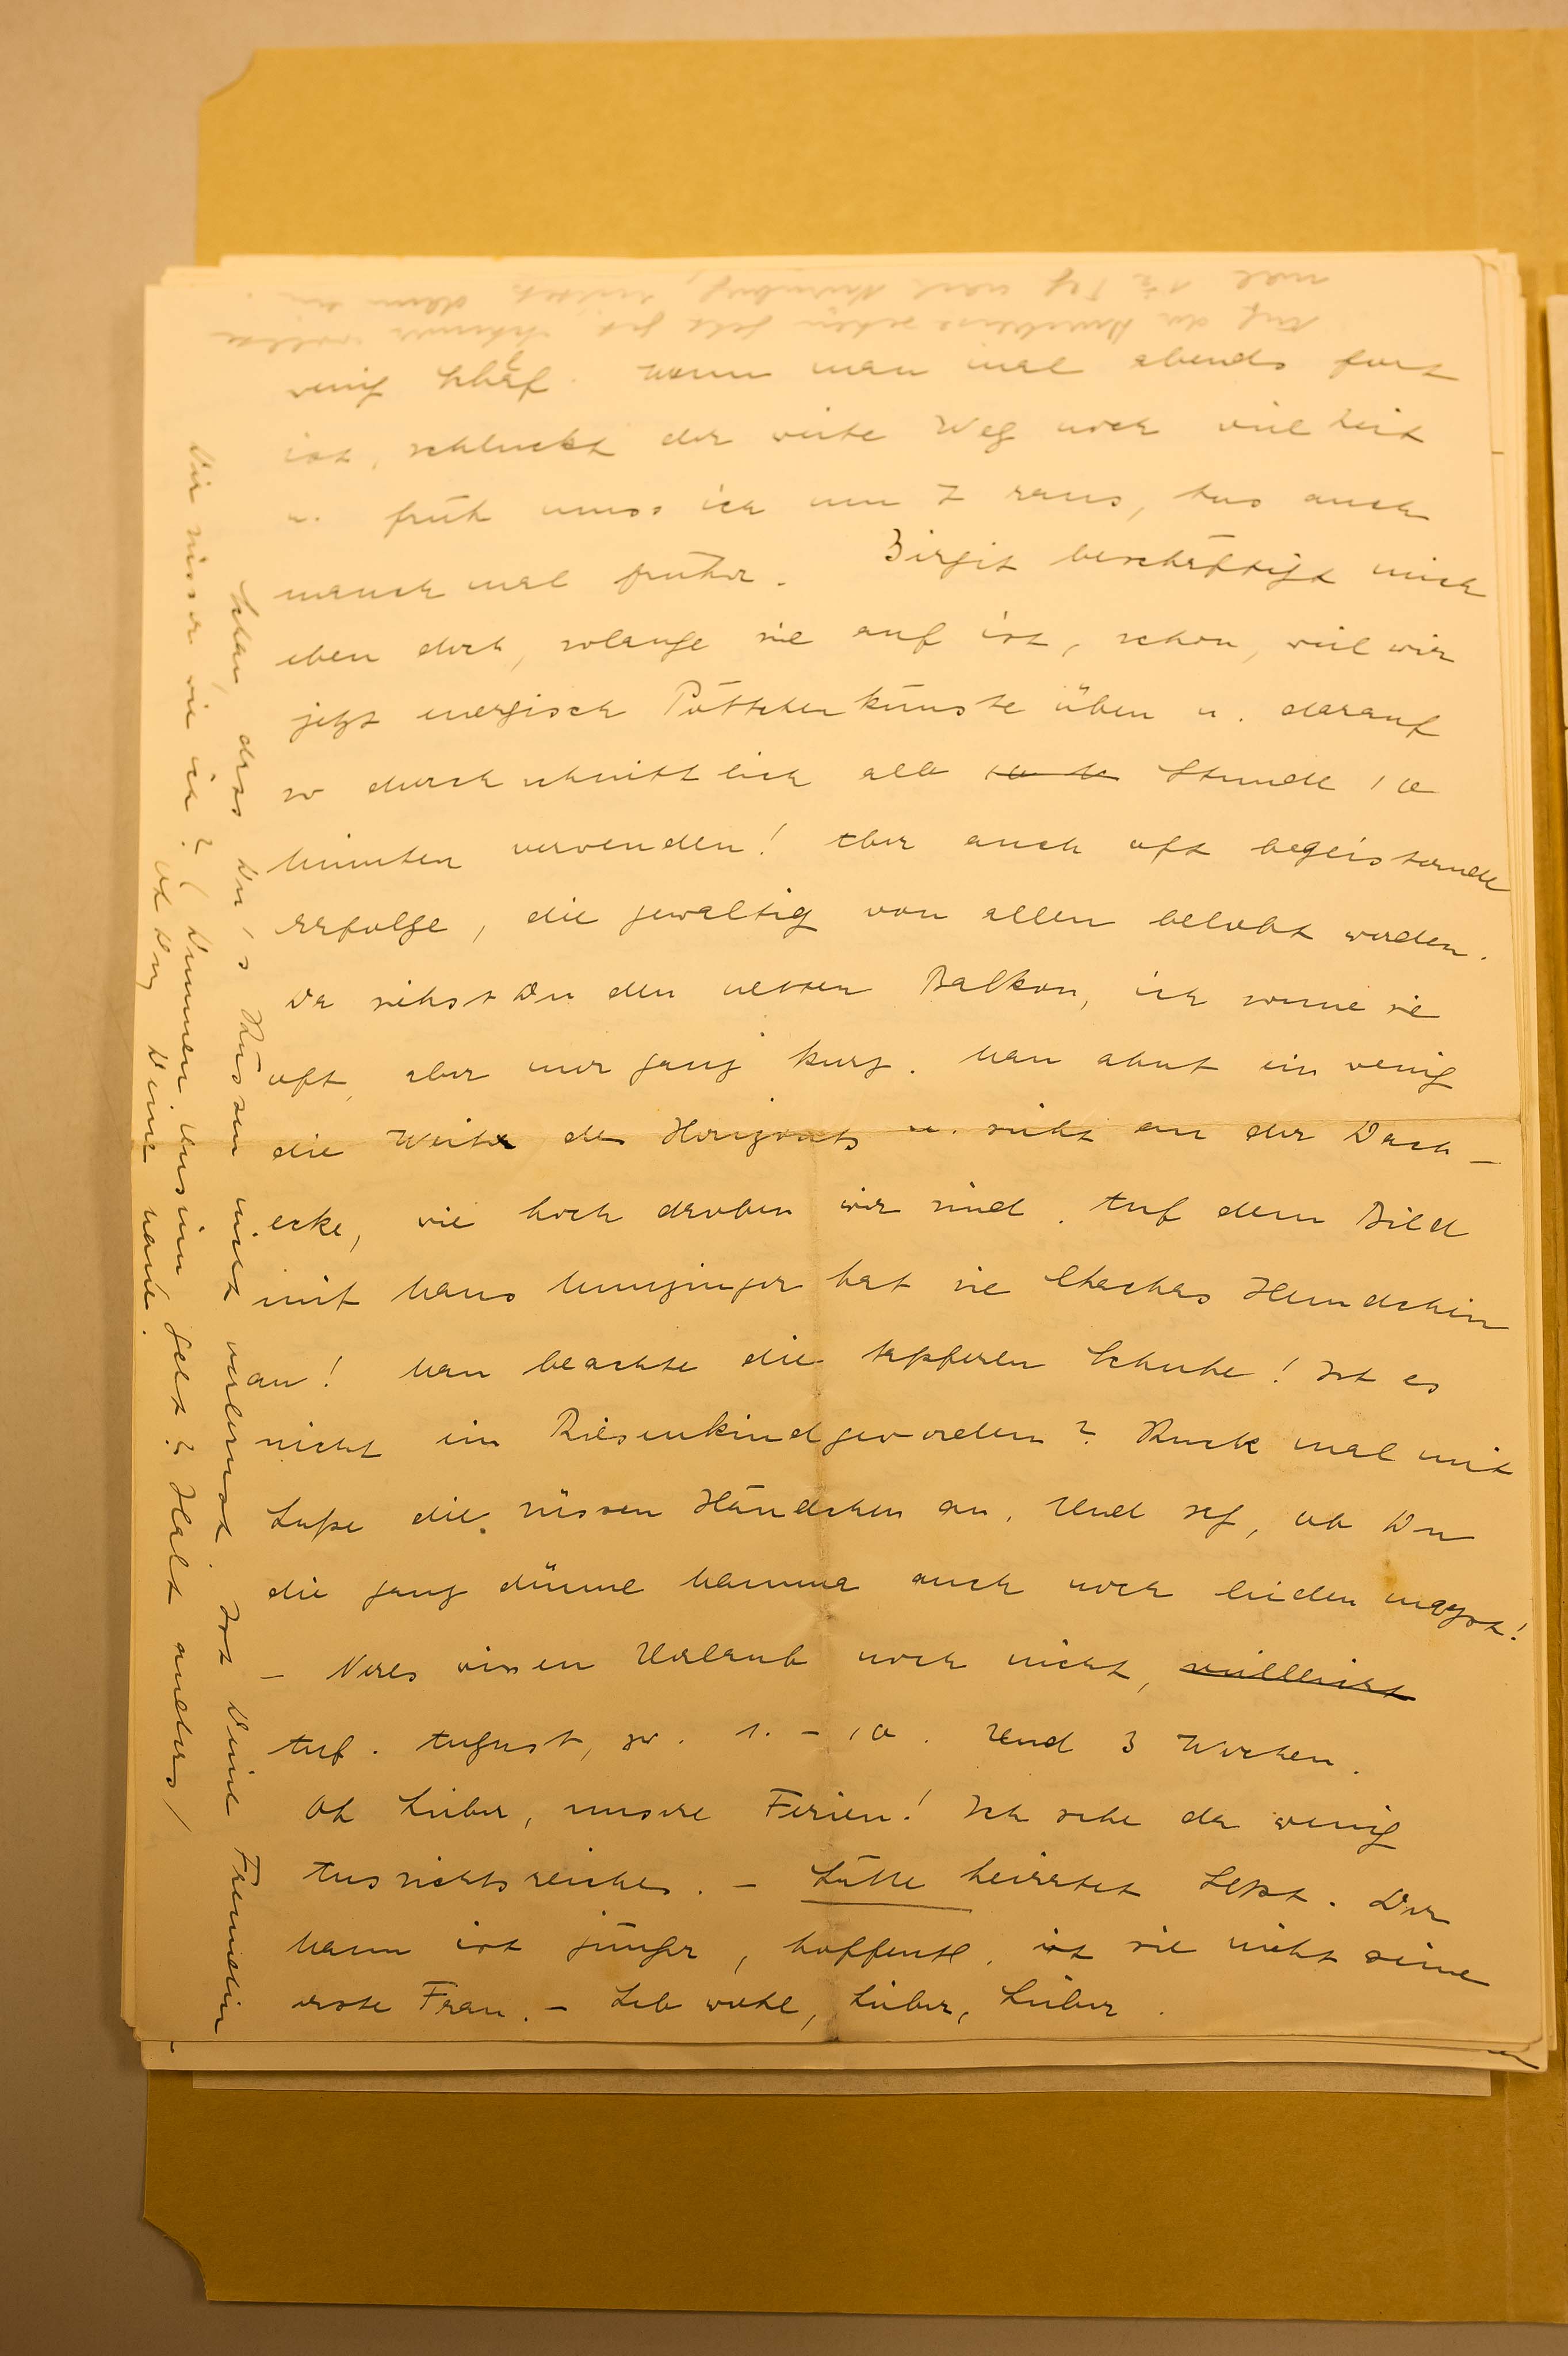 wenig Schlaf. Wenn man mal abends fort
ist, schluckt der weite Weg noch viel Zeit
u. früh muss ich um 7 raus, tus auch
manchmal früher. Birgit beschäftigt mich
eben doch, solange sie auf ist, schon, weil wir
jetzt energisch Pöttchenkünste üben u. darauf
so durchschnittlich alle Stunde 10
Minuten verwenden! Aber auch oft begeisternde
Erfolge, die gewaltig von allen belobt werden.
Da siehst Du den netten Balkon, ich sonne sie
oft, aber nur ganz kurz. Man ahnt ein wenig
die Weite des Horizonts u. sieht an der Dach-
ecke, wie hoch droben wir sind. Auf dem Bild
mit Hans Munzinger hat sie Chachas Hemdchen
an! Man beachte die tapferen Schuhe! Ist es
nicht ein Riesenkind geworden? Kuck mal mit
Lupe die süssen Händchen an. Und sag, ob Du
die ganz dünne Mamma auch noch leiden magst!
- Veres wissen Urlaub noch nicht, vielleicht
Anf. August, zw. 1. - 10. Und 3 Wochen.
Oh Lieber, unsere Ferien! Ich sehe da wenig
Aussichtsreiches. - Lütte heiratet Sept. Der
Mann ist jünger, hoffentl. ist sie nicht seine
erste Frau. - Leb wohl, Lieber, Lieber.
Schau, dass Du's Küssen nicht verlernst. Ist Deine Freundin
Dir süsser wie ich? (Dummen Unsinn, gelt? Halt anders)
Oh Du, Deine